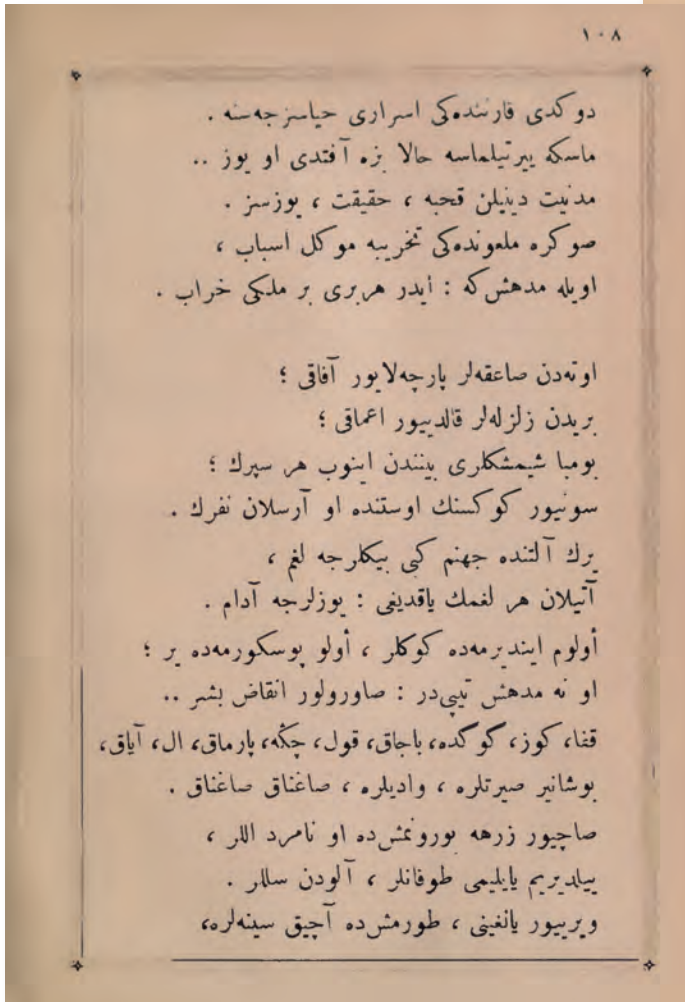 ١٠٨
دوكدی قارننده‌كی اسراری حیاسزجه‌سنه .
ماسكه ییرتیلماسه حالا بزه آفتدی او یوز ..
مدنیت دینیلن قحبه ، حقیقت ، یوزسز .
صوكره ملعونده‌كی تخریبه موكل اسباب ،
اویله مدهش‌كه : ایدر هربری بر ملكی خراب .
اوته‌دن صاعقه‌لر پارچه‌لایور آفاقی ؛
بریدن زلزله‌لر قالدیییور اعماقی ؛
بومبا شیمشكلری بینندن اینوب هر سپرك ؛
سونیور كوكسنك اوستنده او آرسلان نفرك .
یرك آلتنده جهنم كبی بیكلرجه لغم ،
آتیلان هر لغمك یاقدیغی : یوزلرجه آدام .
أولوم ایندیرمه‌ده كوكلر ، أولو پوسكورمه‌ده یر ؛
او نه مدهش تیپی‌در : صاورولور انقاض بشر ..
قفا، كوز، كوكده، باجاق، قول، چكه، پارماق، ال، آیاق،
بوشانیر صیرتلره ، وادیلره ، صاغناق صاغناق .
صاچیور زرهه بورونمش‌ده او نامرد اللر ،
ییلدیریم یایلیمی طوفانلر ، آلودن سللر .
ویرییور یانغینی ، طورمش‌ده آچیق سینه‌لره،